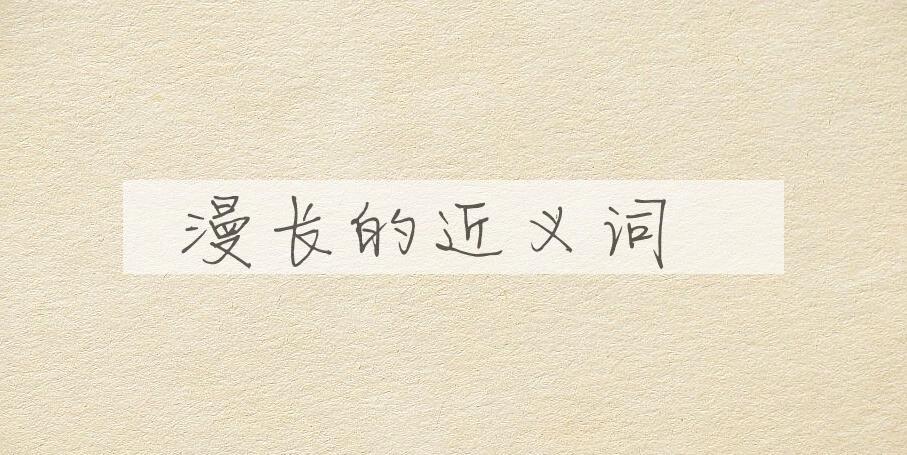 漫长的近义词